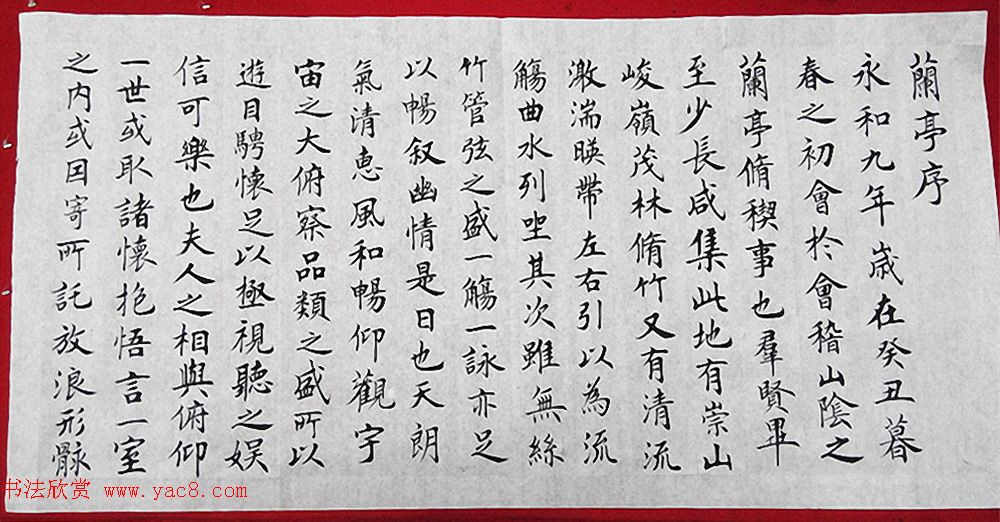 蘭亭序
永和九年歲在癸丑暮
春之初會於會稽山陰之
蘭亭脩稧事也羣賢畢
至少長咸集此地有崇山
峻嶺茂林脩竹又有清流
激湍暎帶左右引以為流
觴曲水列坐其次雖無絲
竹管弦之盛一觴一詠亦足
以暢叙幽情是日也天朗
氣清惠風和暢仰觀宇
宙之大俯察品類之盛所以
遊目騁懷足以極視聽之娛
信可樂也夫人之相與俯仰
一世或取諸懷抱悟言一室
之内或因寄所託放浪形骸
书法欣赏 www.yac8.com